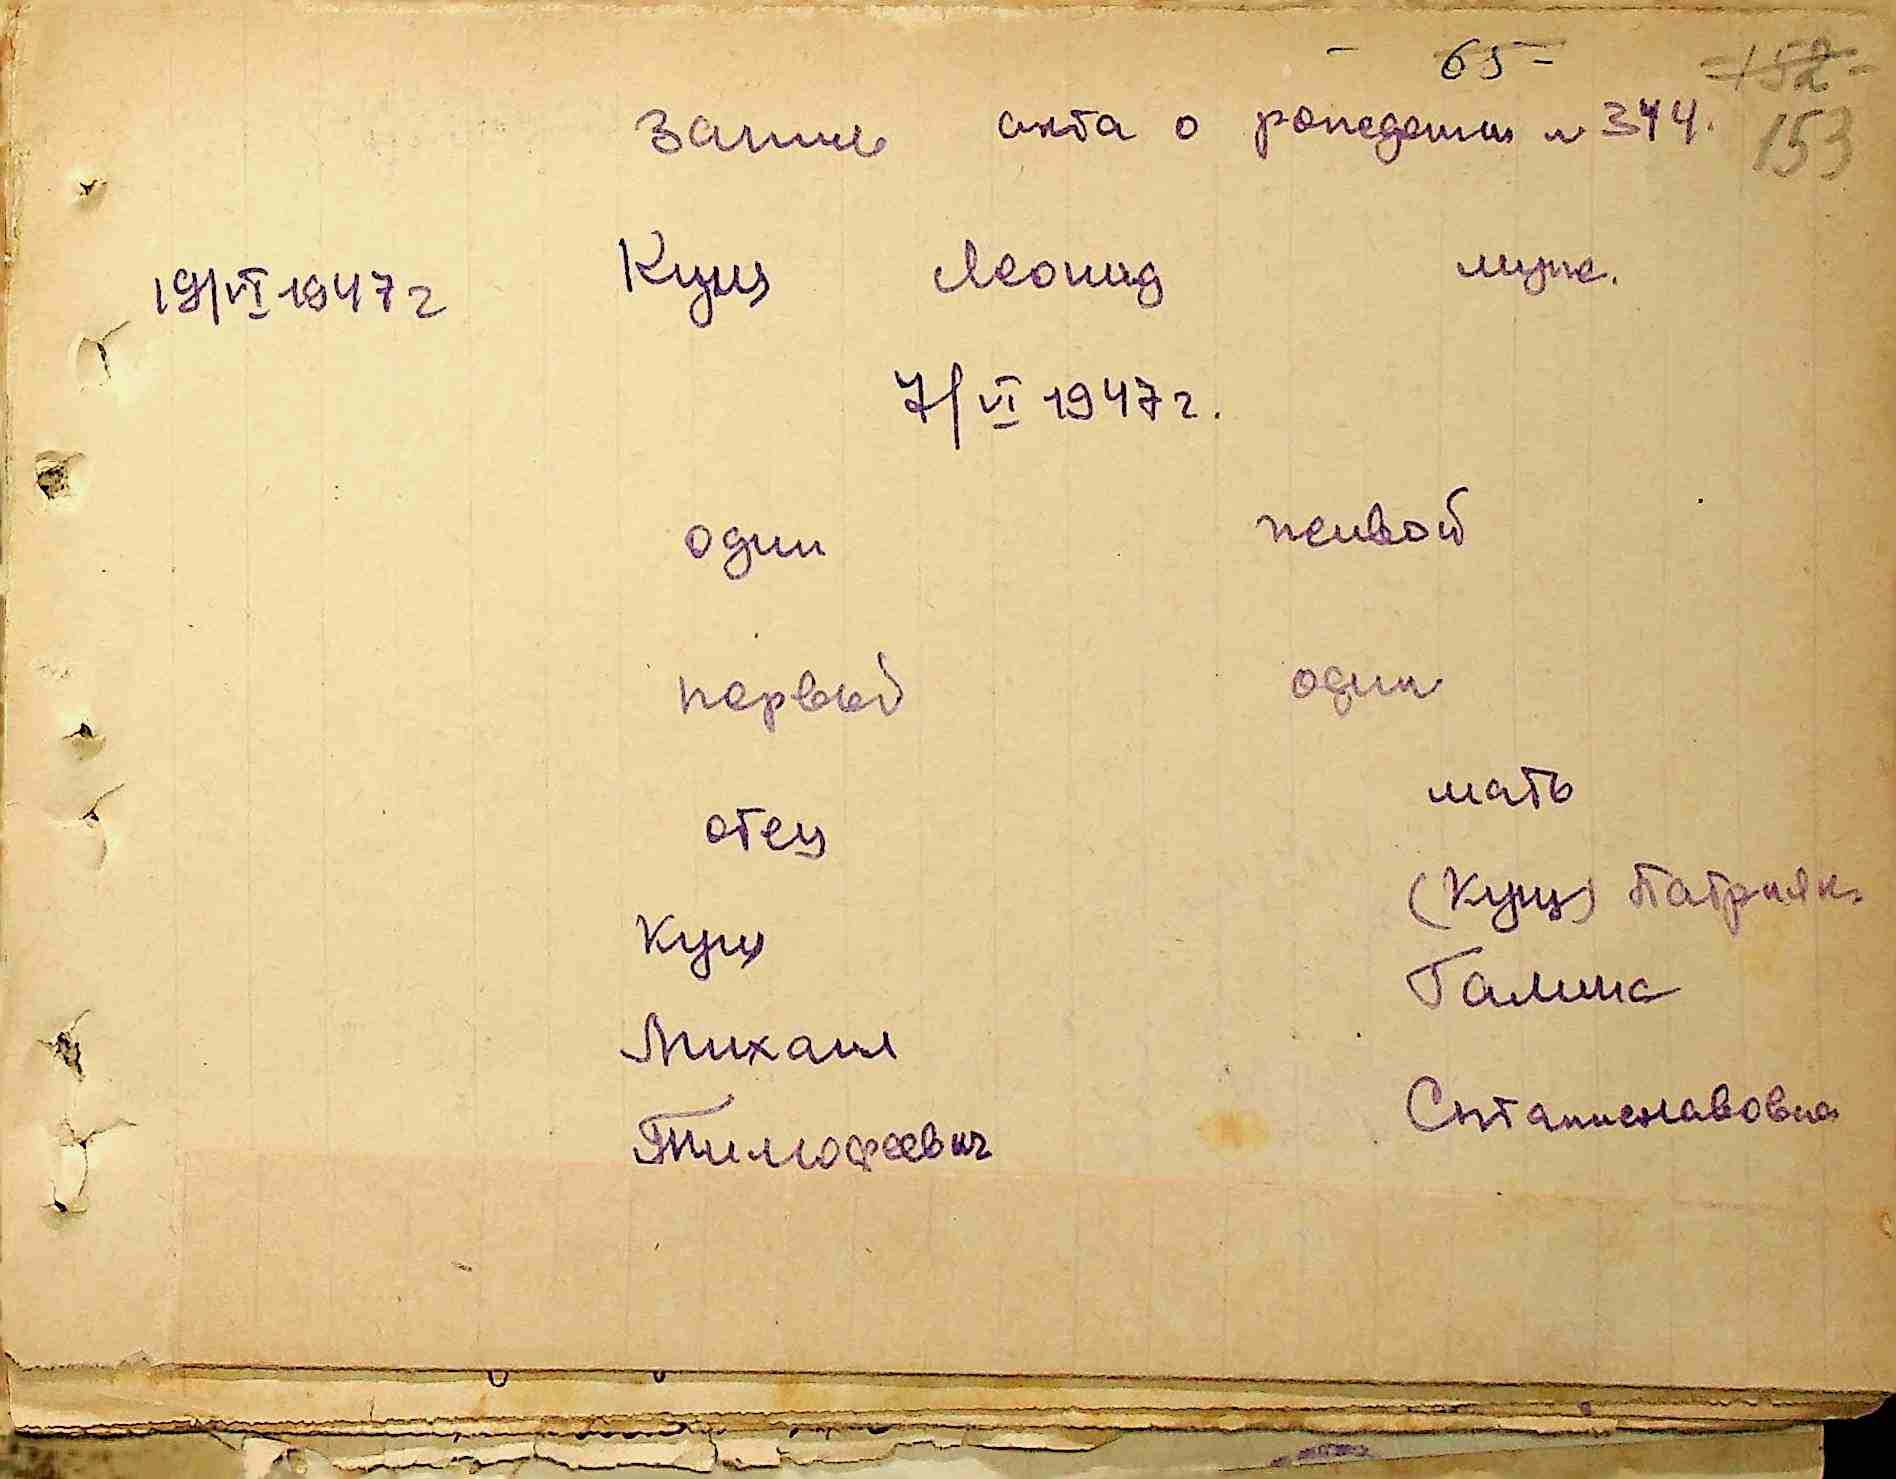 - 65 -
-152-
Запись акта о рождении № 344.
153
19/VI 1947 г Кущ Леонид муж.
7/VI 1947 г.
один живой
первый один
отец мать
Кущ (Кущ)
Михаил Галина
Тимофеевич Станиславовна